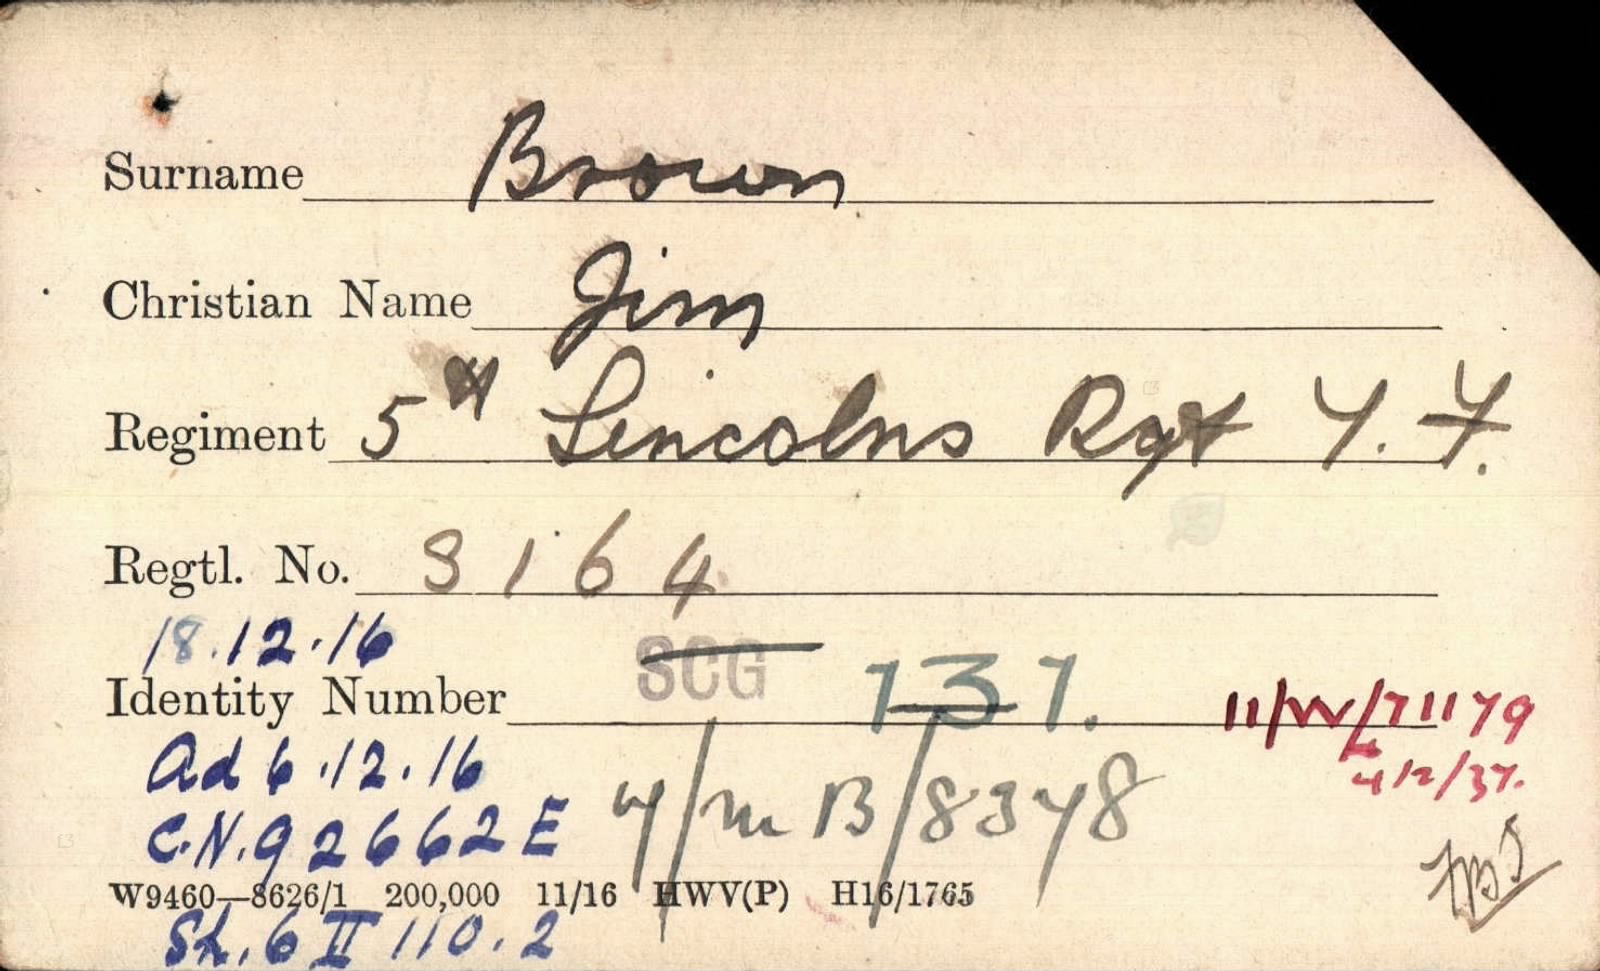 Surname Brown
Christian Name Jim
Regiment 5th Lincolns Rgt T.F.
Regtl. No. 3164
18.12.16
SCG 131.
Identity Number 11/W/71179
4/2/37.
Ad 6.12.16
4/M B/8378
C.N. 92662 E
W9460—8626/1 200,000 11/16 HWV(P) H16/1765
Sh. 6 II 110.2